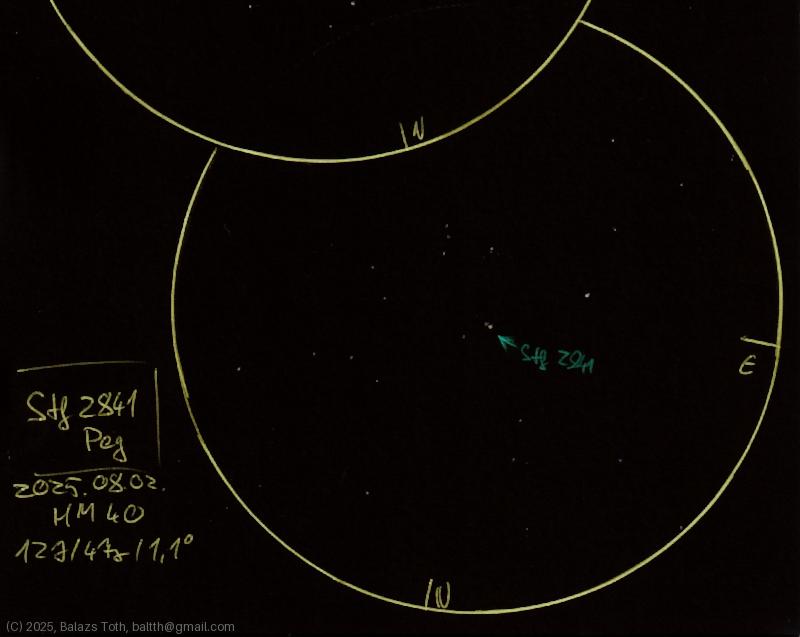 N
E
Stf 2841
Stf 2841
Peg
2025.08.02.
HM 40
127/47x/1,1°
N
(C) 2025, Balazs Toth, baltth@gmail.com